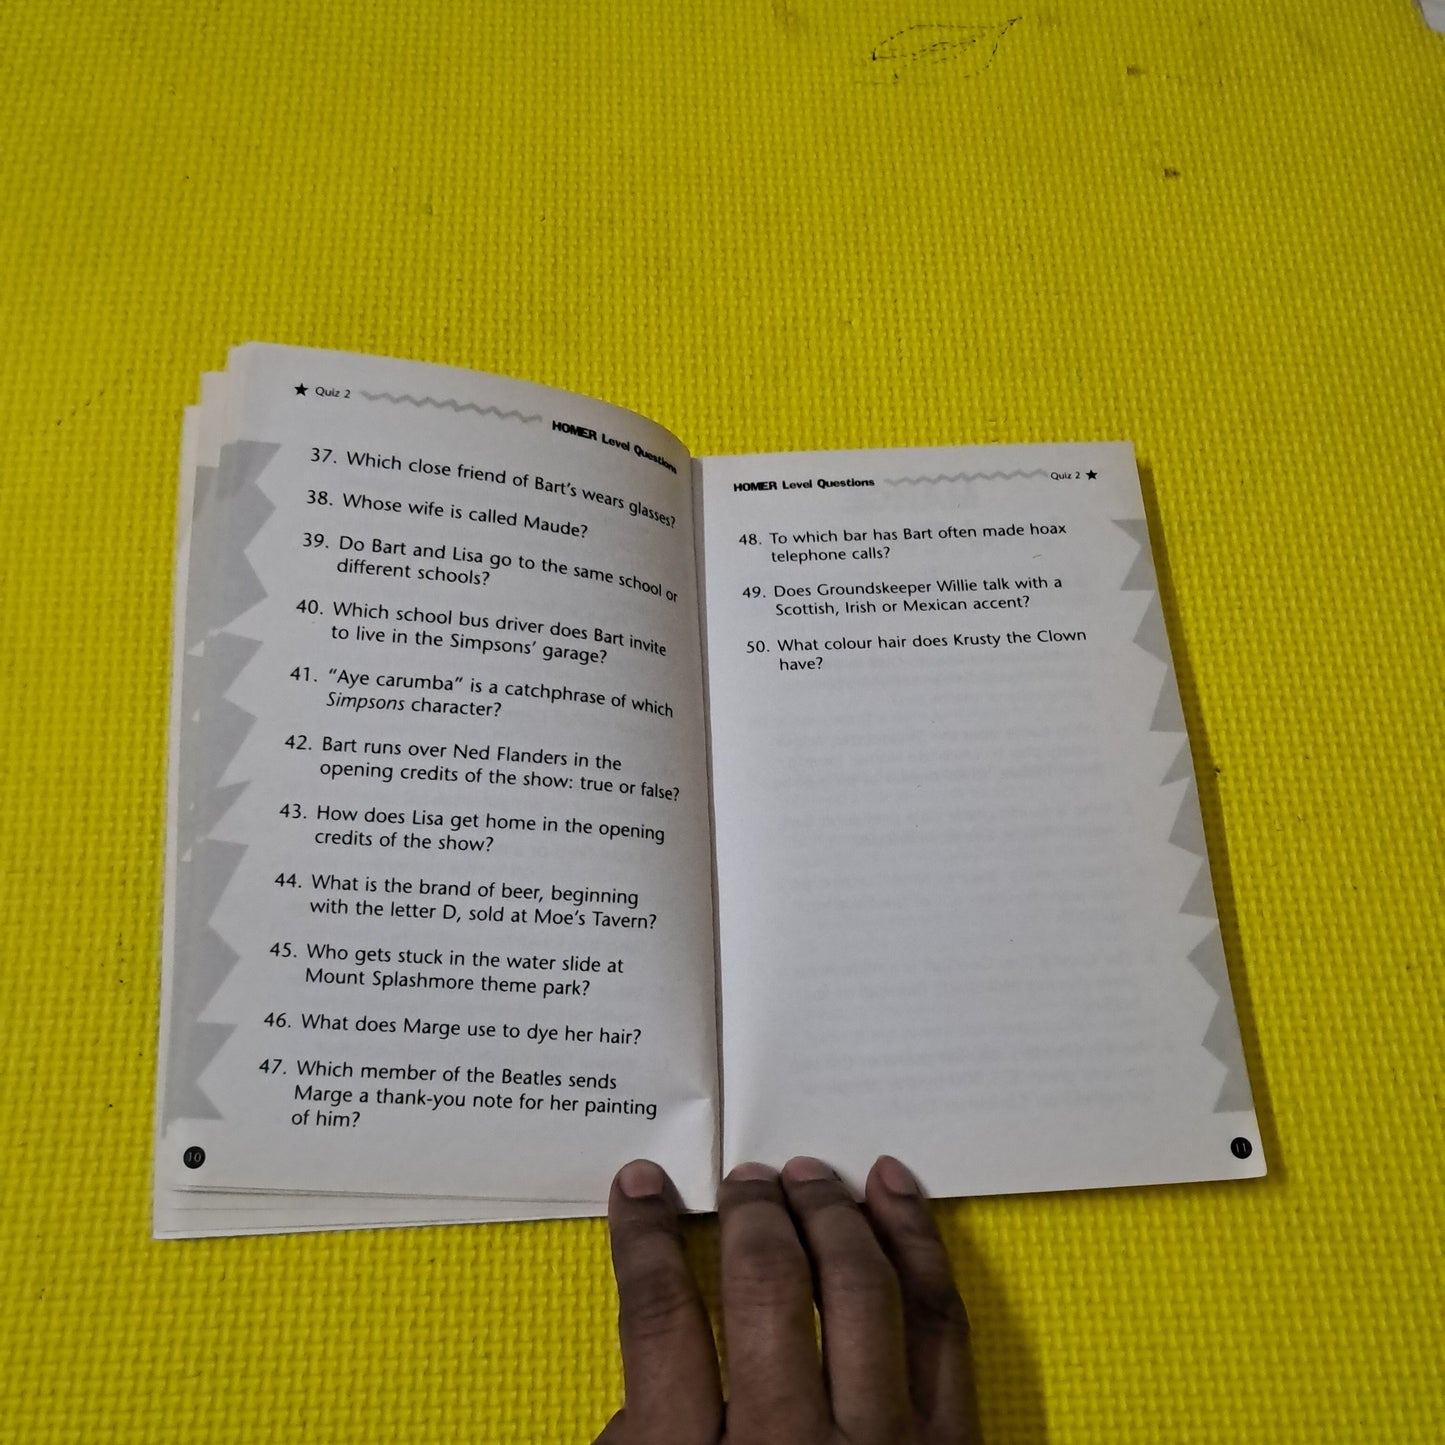 ★ Quiz 2
HOMER Level Questions
37. Which close friend of Bart's wears glasses?
38. Whose wife is called Maude?
39. Do Bart and Lisa go to the same school or
different schools?
40. Which school bus driver does Bart invite
to live in the Simpsons' garage?
41. "Aye carumba" is a catchphrase of which
Simpsons character?
42. Bart runs over Ned Flanders in the
opening credits of the show: true or false?
43. How does Lisa get home in the opening
credits of the show?
44. What is the brand of beer, beginning
with the letter D, sold at Moe's Tavern?
45. Who gets stuck in the water slide at
Mount Splashmore theme park?
46. What does Marge use to dye her hair?
47. Which member of the Beatles sends
Marge a thank-you note for her painting
of him?
10
HOMER Level Questions
Quiz 2 ★
48. To which bar has Bart often made hoax
telephone calls?
49. Does Groundskeeper Willie talk with a
Scottish, Irish or Mexican accent?
50. What colour hair does Krusty the Clown
have?
11